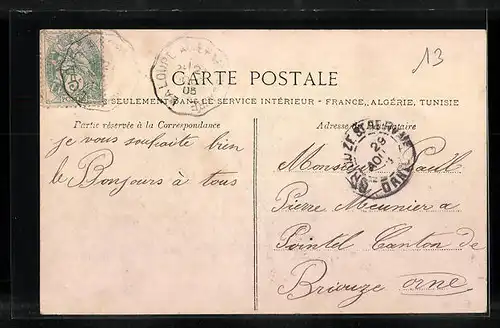 13
CARTE POSTALE
SEULEMENT DANS LE SERVICE INTÉRIEUR - FRANCE, ALGÉRIE, TUNISIE
Partie réservée à la Correspondance
Adresse
je vous souhaite bien
le Bonjours à tous
Monsieur Paul
Pierre Meunier a
Pointel Canton de
Briouze orne
LA LOUPE
08
ORNE